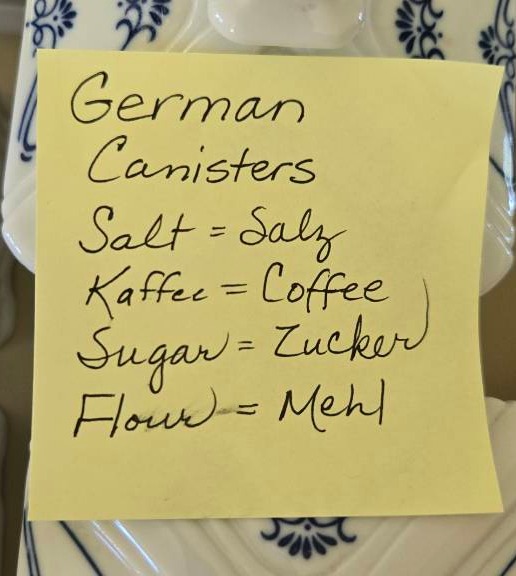 German
Canisters
Salt = Salz
Kaffee = Coffee
Sugar = Zucker
Flour = Mehl